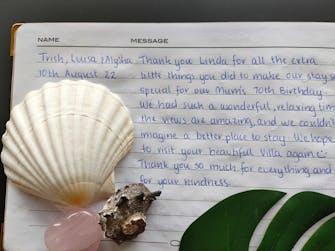 NAME MESSAGE
Trish, Luisa & Alysha Thank you Linda for all the extra
10th August 22 little things you did to make our stay
special for our Mum's 70th Birthday.
We had such a wonderful, relaxing time
the views are amazing, and we couldn't
imagine a better place to stay. We hope
to visit your beautiful Villa again
Thank you so much for everything and
for your kindness.